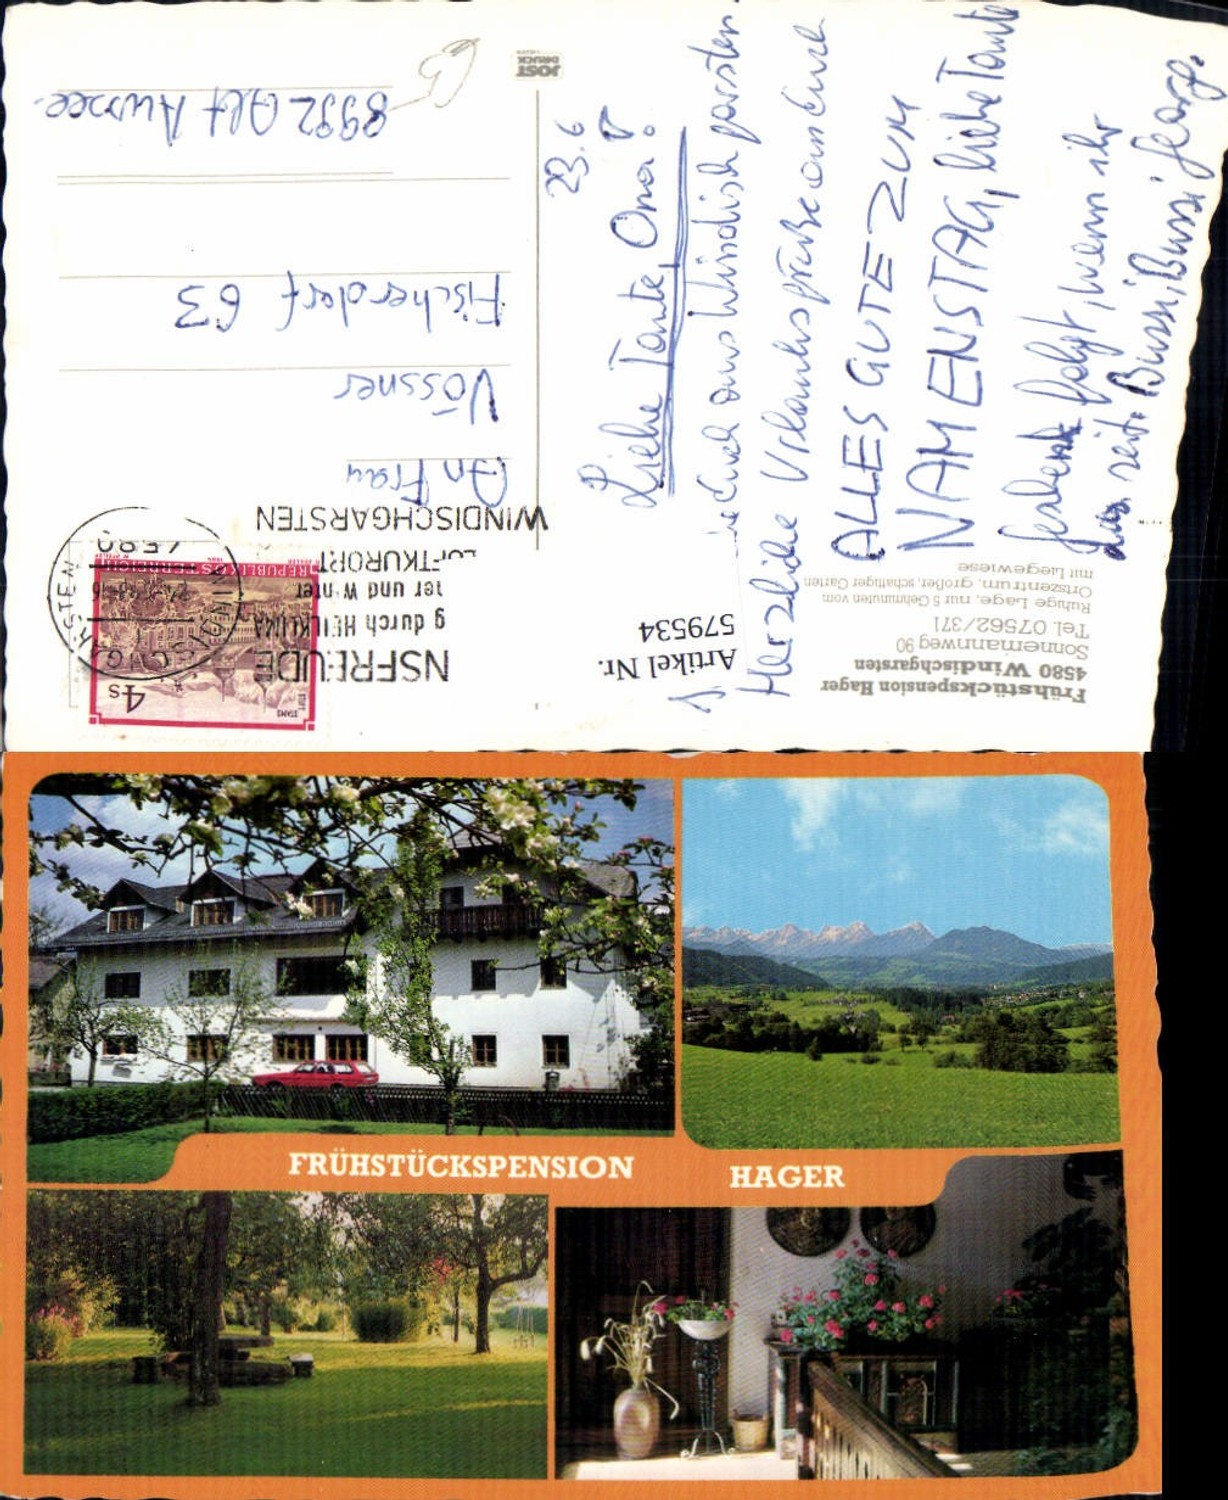 Frühstückspension Hager
4580 Windischgarsten
Sonnemannweg 90
Tel. 07562/371
Ruhige Lage, nur 5 Gehminuten vom
Ortszentrum, großer, schattiger Garten
mit Liegewiese
Artikel Nr.
579534
NSFREUDE
g durch HEILKLIMA
er und Winter
LUFTKURORT
WINDISCHGARSTEN
4580
4s
STIFT
STAMS
REPUBLIK ÖSTERREICH
JOST
DRUCK
23.6
Liebe Tante, Oma!
Euch aus Windischgarsten
Herzliche Urlaubsgrüße an Eure
ALLES GUTE ZUM
NAMENSTAG, liebe Tante
folgt, wenn ihr
da seit. Bussi, Bussi Georg.
An Frau
Vössner
Fischerdorf 63
8992 Alt Aussee.
FRÜHSTÜCKSPENSION HAGER